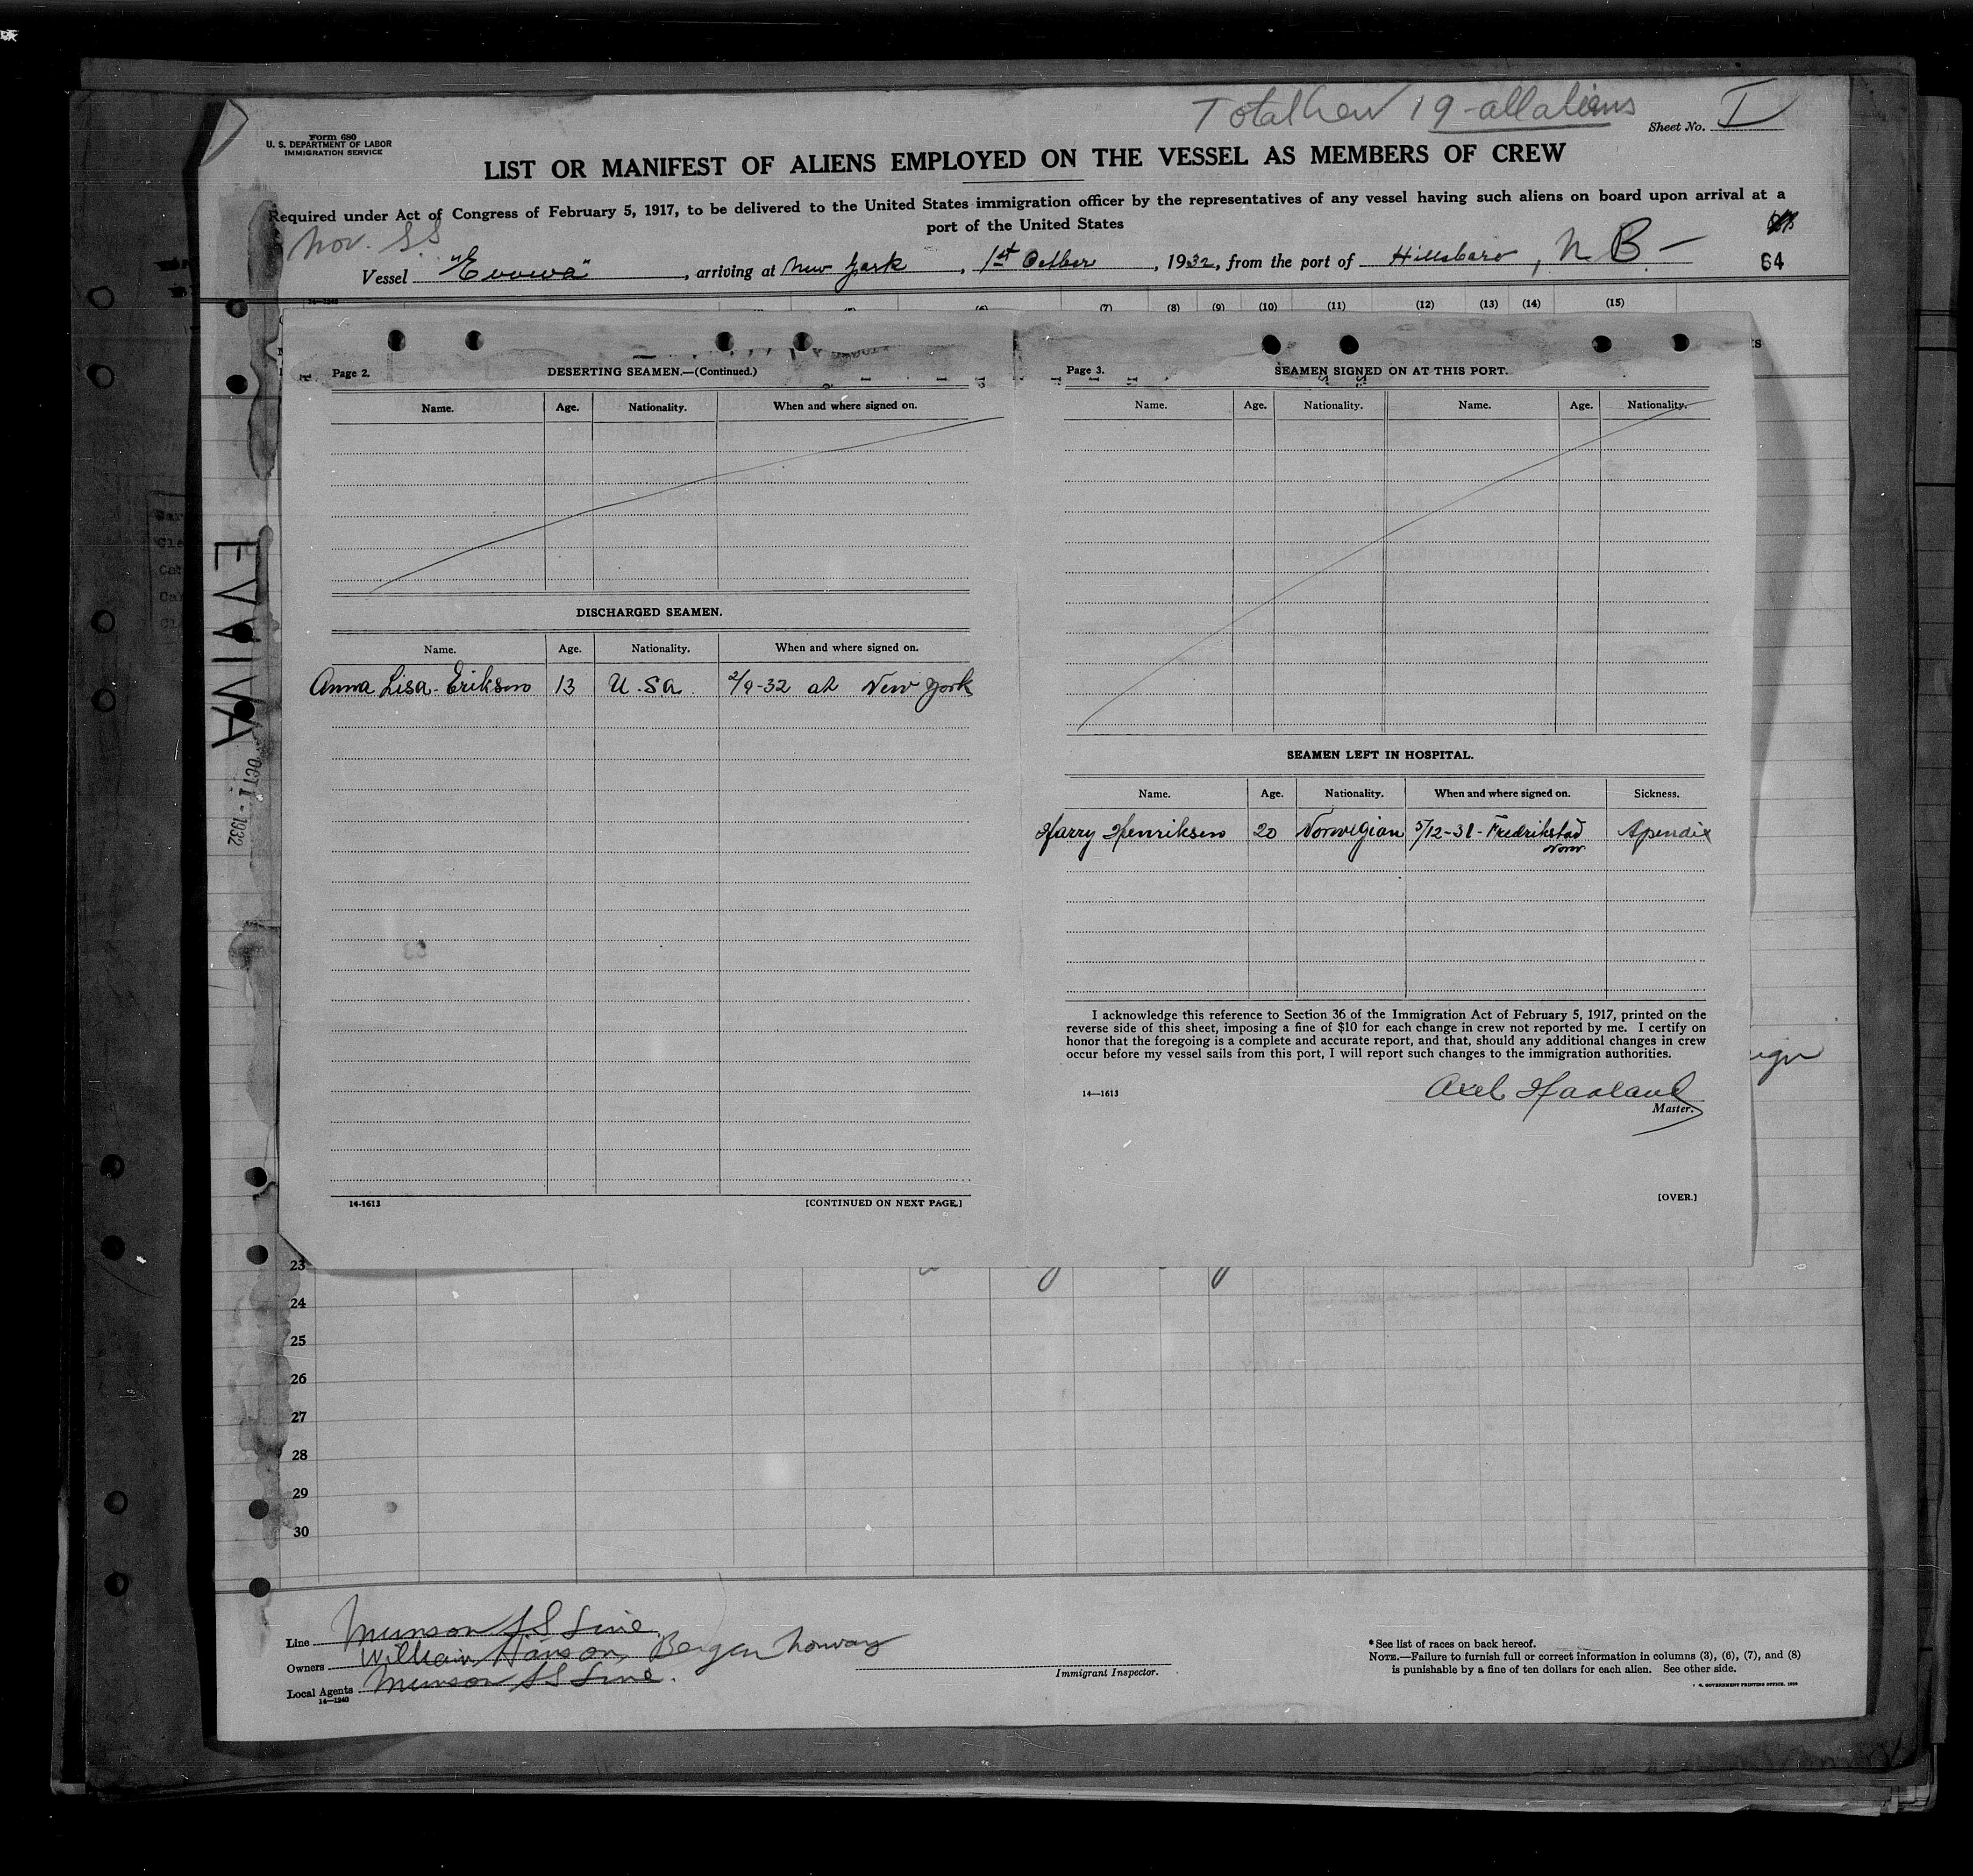 Total Crew 19 - all aliens
Sheet No. I
Form 680
U. S. DEPARTMENT OF LABOR
IMMIGRATION SERVICE
LIST OR MANIFEST OF ALIENS EMPLOYED ON THE VESSEL AS MEMBERS OF CREW
Required under Act of Congress of February 5, 1917, to be delivered to the United States immigration officer by the representatives of any vessel having such aliens on board upon arrival at a
port of the United States
Nor. SS
Vessel , arriving at New York , 1st , 1932, from the port of Hillsboro , N B -
64
14-1240
(7) (8) (9) (10) (11) (12) (13) (14) (15)
Page 2. DESERTING SEAMEN.—(Continued.)
Name. Age. Nationality. When and where signed on.
DISCHARGED SEAMEN.
Name. Age. Nationality. When and where signed on.
Anna Lisa Eriksen 13 U.Sa. 2/9-32 at New York
14-1613 [CONTINUED ON NEXT PAGE.]
Page 3. SEAMEN SIGNED ON AT THIS PORT.
Name. Age. Nationality. Name. Age. Nationality.
SEAMEN LEFT IN HOSPITAL.
Name. Age. Nationality. When and where signed on. Sickness.
Harry Henriksen 20 Norwegian 5/12-31 - Fredrikstad Apendix
Norw.
I acknowledge this reference to Section 36 of the Immigration Act of February 5, 1917, printed on the
reverse side of this sheet, imposing a fine of $10 for each change in crew not reported by me. I certify on
honor that the foregoing is a complete and accurate report, and that, should any additional changes in crew
occur before my vessel sails from this port, I will report such changes to the immigration authorities.
14—1613
Axel Haaland
Master.
[OVER.]
EVIVA
OCT 1 - 1932
23
24
25
26
27
28
29
30
Line Munson SS Line
Owners William Hanson, Bergen Norway
Local Agents Munson SS Line.
14—1240
Immigrant Inspector.
*See list of races on back hereof.
NOTE.—Failure to furnish full or correct information in columns (3), (6), (7), and (8)
is punishable by a fine of ten dollars for each alien. See other side.
GOVERNMENT PRINTING OFFICE